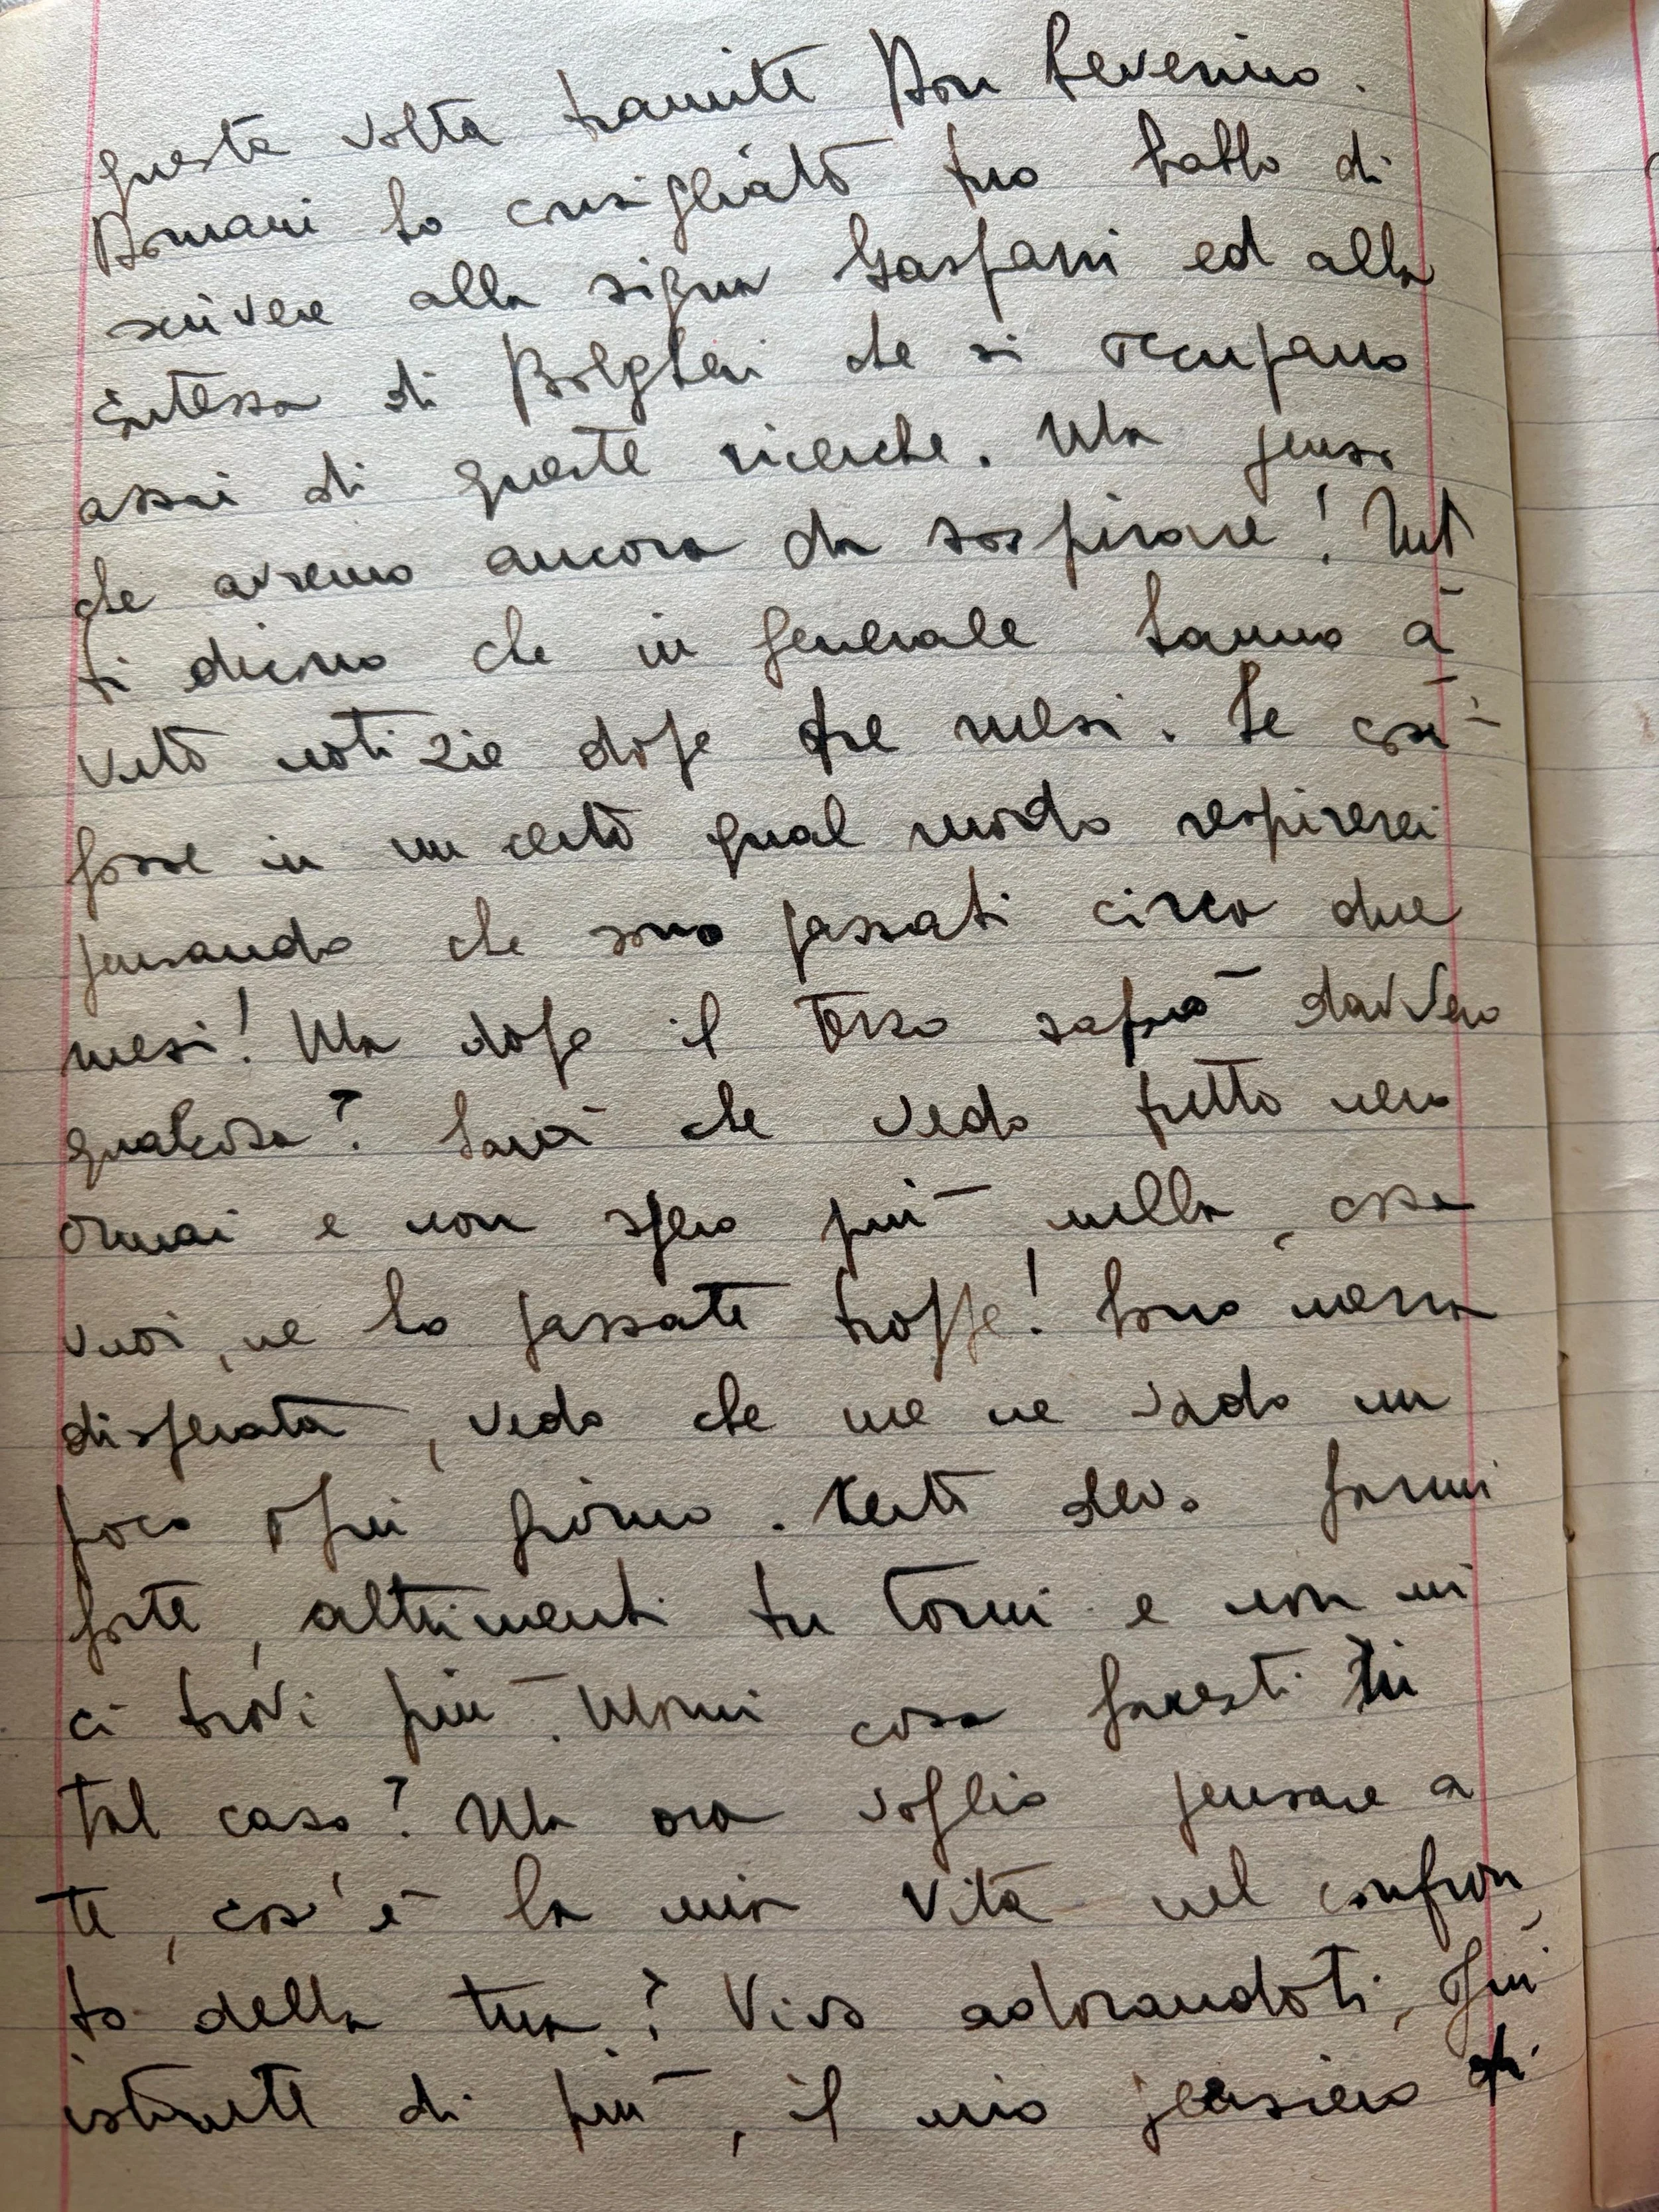 questa volta tramite Don Severino.
Domani ho consigliato tuo babbo di
scrivere alla signora Gasparri ed alla
Contessa di Bolgheri che si occupano
assai di queste ricerche. Ma penso
che avremo ancora da sospirare! Tut
ti dicono che in generale hanno a
vuto notizie dopo tre mesi. Se così
fosse in un certo qual modo respirerei
pensando che sono passati circa due
mesi! Ma dopo il terzo saprò davvero
qualcosa? Sarà che vedo tutto nero
ormai e non spero più nulla, cosa
vuoi, ne ho passate troppe! Sono mezza
disperata, vedo che me ne vado un
poco ogni giorno. Certo devo farmi
forte, altrimenti tu torni e non mi
ci trovi più. Mimi cosa faresti in
tal caso? Ma ora voglio pensare a
te, cos'è la mia vita nel confron
to della tua? Vivo adorandoti, ogni
istante di più, il mio pensiero